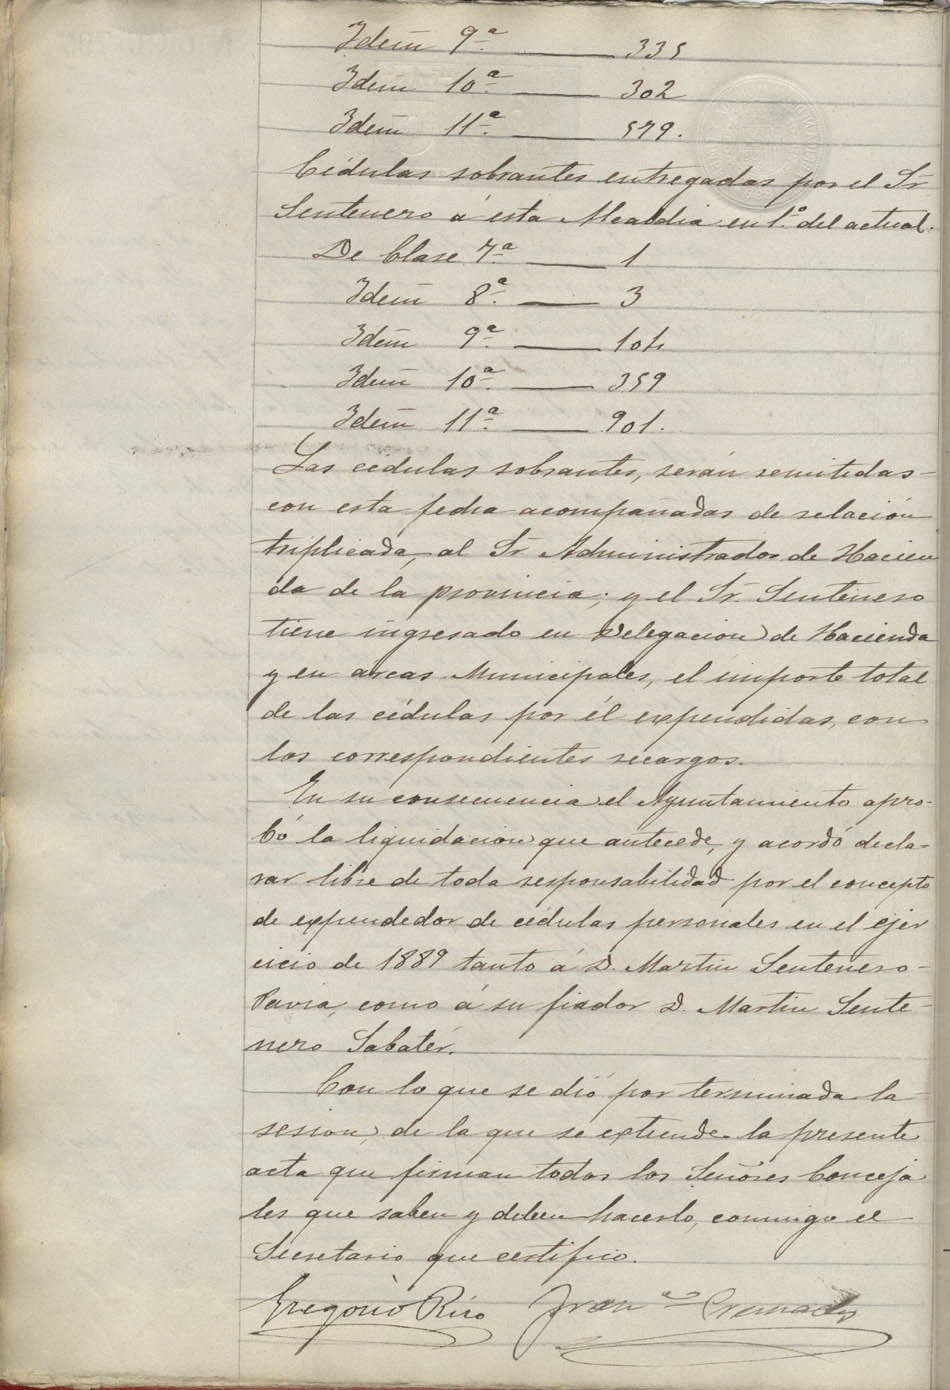 Idem 9.ª —— 335
Idem 10.ª —— 302
Idem 11.ª —— 579.
Cédulas sobrantes entregadas por el Sr
Sentenero á esta Alcaldia en 1.º del actual.
De Clase 7.ª —— 1
Idem 8.ª —— 3
Idem 9.ª —— 104
Idem 10.ª —— 359
Idem 11.ª —— 901.
Las cédulas sobrantes, serán remitidas
con esta fecha acompañadas de relación
triplicada, al Sr. Administrador de Hacien
da de la provincia; y el Sr. Sentenero
tiene ingresado en Delegacion de Hacienda
y en arcas Municipales, el importe total
de las cédulas por él expendidas, con
los correspondientes recargos.
En su consecuencia el Ayuntamiento apro-
bó la liquidacion que antecede, y acordó decla-
rar libre de toda responsabilidad por el concepto
de expendedor de cédulas personales en el ejer
cicio de 1889 tanto á D. Martin Sentenero
Pavia, como á su fiador D. Martin Sente-
nero Sabatér.
Con lo que se dió por terminada la
sesion, de la que se extiende la presente
acta que firman todos los Señores Conceja
les que saben y deben hacerlo, conmigo el
Secretario que certifico.
Gregorio Rico Fran.co Cremades